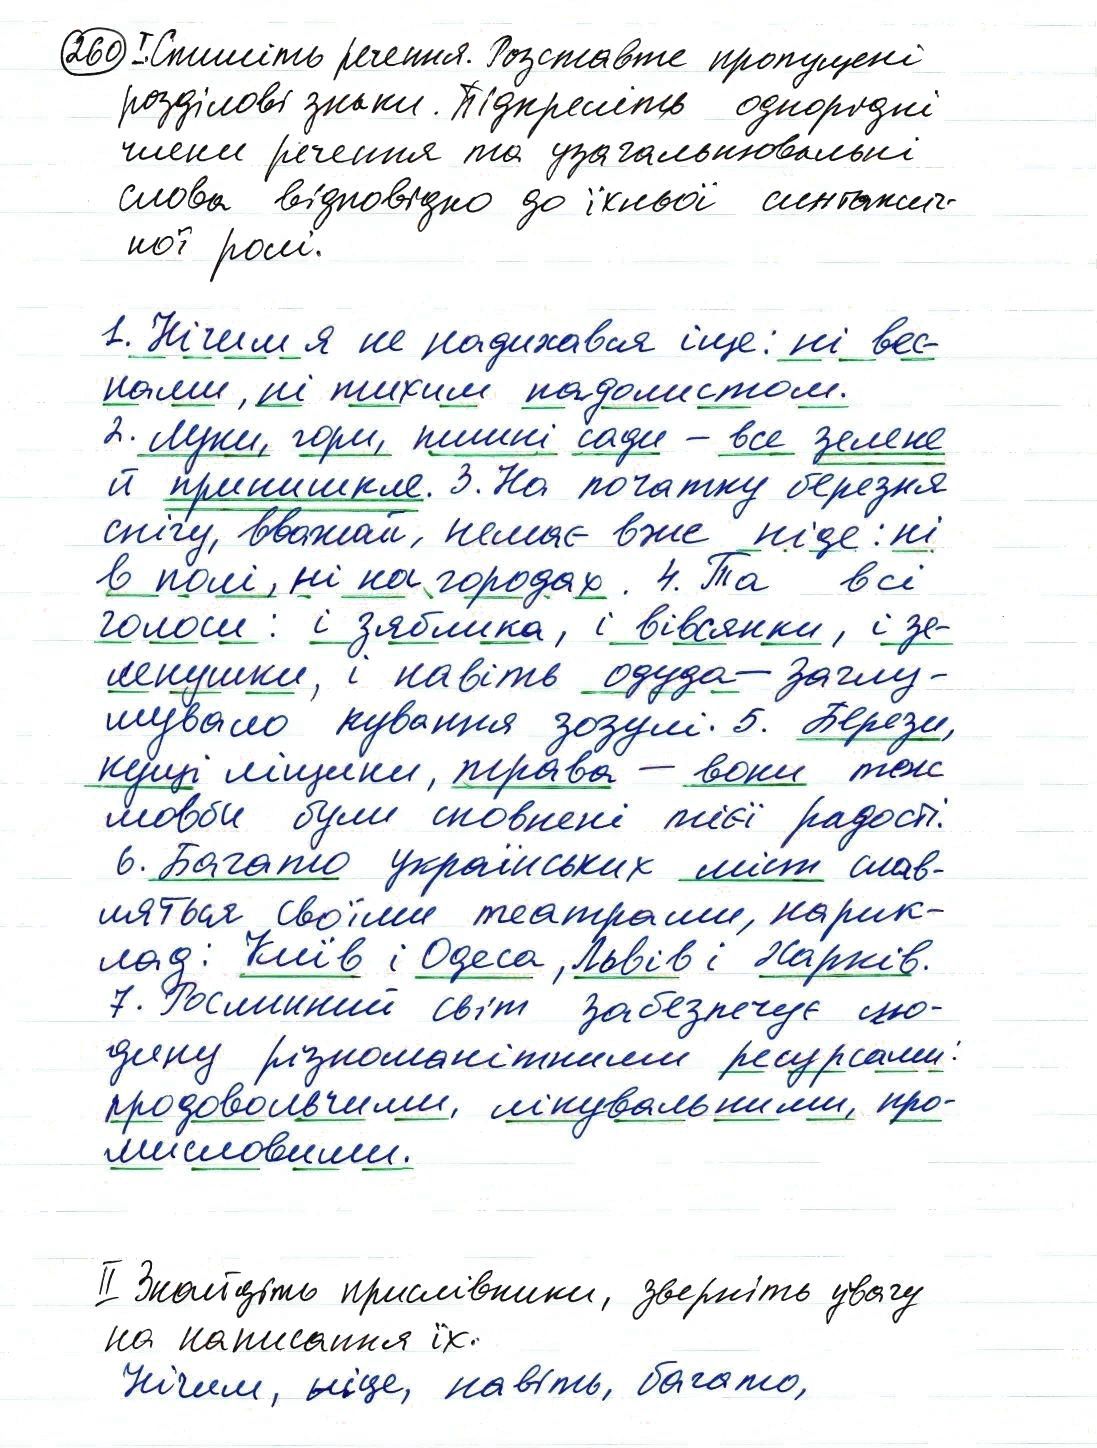 260 I. Спишіть речення. Розставте пропущені
розділові знаки. Підкресліть однорідні
члени речення та узагальнювальні
слова відповідно до їхньої синтаксич-
ної ролі.
1. Нічим я не надихався іще: ні вес-
нами, ні тихим падолистом.
2. Луки, гори, пишні сади – все зелене
й принишкле. 3. На початку березня
снігу, вважай, немає вже ніде: ні
в полі, ні на городах. 4. Та всі
голоси: і зяблика, і вівсянки, і зе-
ленушки, і навіть одуда – заглу-
шувало кування зозулі. 5. Берези,
кущі ліщини, трава – вони теж
мовби були сповнені тієї радості.
6. Багато українських міст слав-
ляться своїми театрами, нарик-
лад: Київ і Одеса, Львів і Харків.
7. Рослинний світ забезпечує лю-
дину різноманітними ресурсами:
продовольчими, лікувальними, про-
мисловими.
II Знайдіть прислівники, зверніть увагу
на написання їх.
Нічим, ніде, навіть, багато,